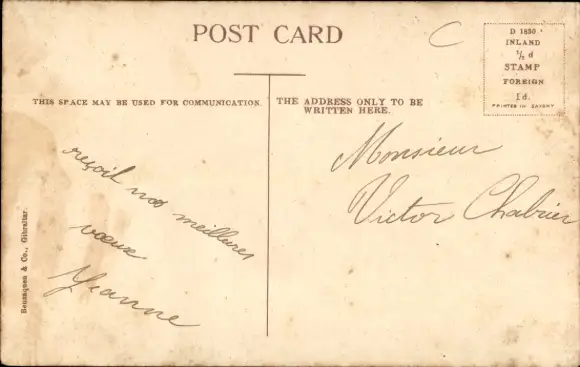 POST CARD
C
D 1850
INLAND
½ d
STAMP
FOREIGN
1d.
PRINTED IN SAXONY
THIS SPACE MAY BE USED FOR COMMUNICATION.
THE ADDRESS ONLY TO BE
WRITTEN HERE.
reçoit nos meilleures
vœux
Jeanne
Monsieur
Victor Chabrier
Benzaquen & Co., Gibraltar.